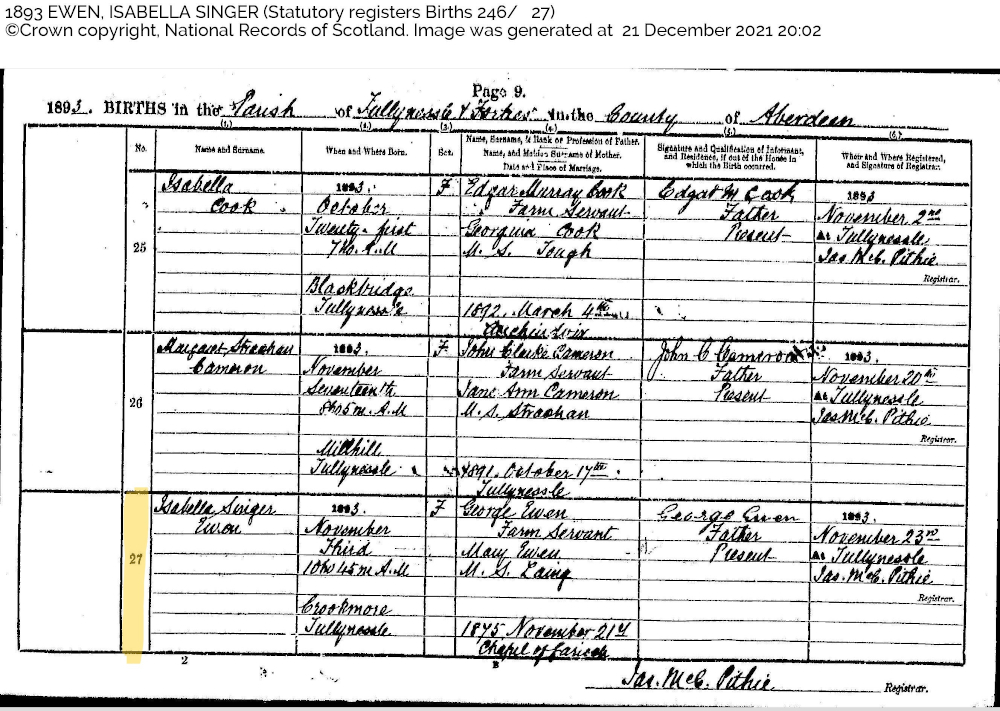 1893 EWEN, ISABELLA SINGER (Statutory registers Births 246/ 27)
©Crown copyright, National Records of Scotland. Image was generated at 21 December 2021 20:02
Page 9.
1893. BIRTHS in the Parish of Tullynessle & Forbes in the County of Aberdeen
(1.) (2.) (3.) (4.) (5.) (6.)
No.
Name and Surname.
When and Where Born.
Sex.
Name, Surname, & Rank or Profession of Father.
Name, and Maiden Surname of Mother.
Date and Place of Marriage.
Signature and Qualification of Informant,
and Residence, if out of the House in
which the Birth occurred.
When and Where Registered,
and Signature of Registrar.
25
Isabella
Cook
1893.
October
Twenty-first
7h. A.M
Blackbridge
Tullynessle
F
Edgar Murray Cook
Farm Servant
Georgina Cook
M. S. Tough
1892, March 4th
Edgar M Cook
Father
Present
1893
November 2nd
At Tullynessle
Jas. McC. Pithie
Registrar.
26
Margaret Strachan
Cameron
1893.
November
Seventeenth
8h 5m A.M
Millhill
Tullynessle
F
John Clarke Cameron
Farm Servant
Jane Ann Cameron
M. S. Strachan
1891, October 17th
Tullynessle
John C Cameron
Father
Present
1893.
November 20th
At Tullynessle
Jas McC. Pithie
Registrar.
27
Isabella Singer
Ewen
1893.
November
Third
10h 45m A.M
Crookmore
Tullynessle
F
George Ewen
Farm Servant
Mary Ewen
M. S. Laing
1875 November 21st
Chapel of Garioch
George Ewen
Father
Present
1893.
November 23rd
At Tullynessle
Jas. McC. Pithie
Registrar.
2
B
Jas. McC. Pithie Registrar.